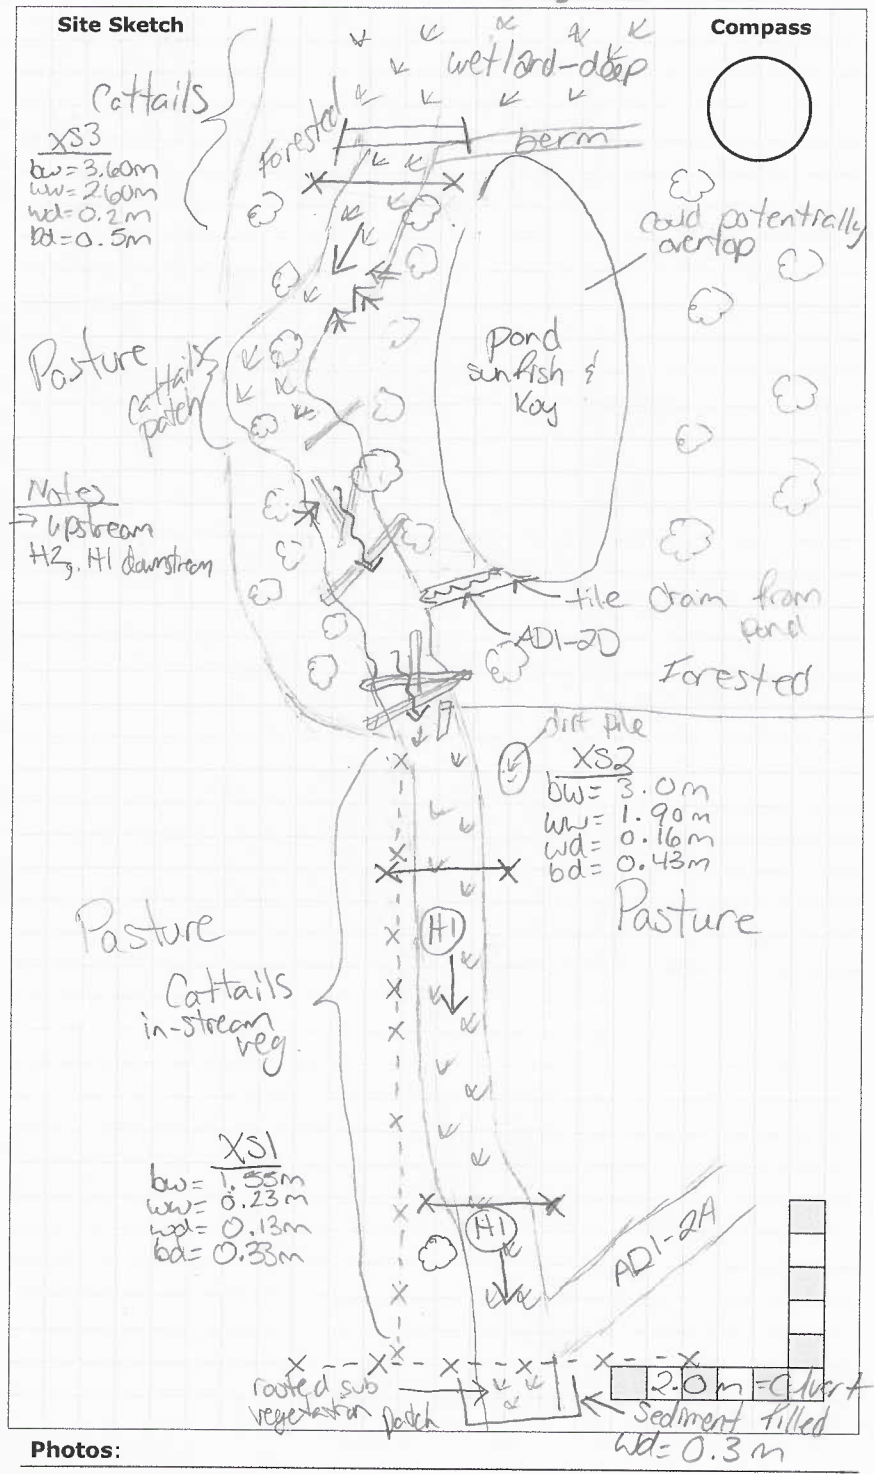 Site Sketch
Compass
wetland-deep
Cattails
Forested
berm
XS3
bw= 3.60m
ww= 2.60m
wd= 0.2m
bd= 0.5m
could potentially
overtop
Pasture
Cattails
patch
pond
sunfish &
Koy
Notes
→ upstream
H2, H1 downstream
tile drain from
pond
AD1-2D
Forested
dirt pile
XS2
bw= 3.0m
ww= 1.90m
wd= 0.16m
bd= 0.43m
Pasture
Pasture
H1
Cattails
in-stream
veg.
XS1
bw= 1.55m
ww= 0.23m
wd= 0.13m
bd= 0.33m
H1
AD1-2A
rooted sub
vegetation patch
2.0m = Culvert
Sediment filled
wd= 0.3m
Photos: